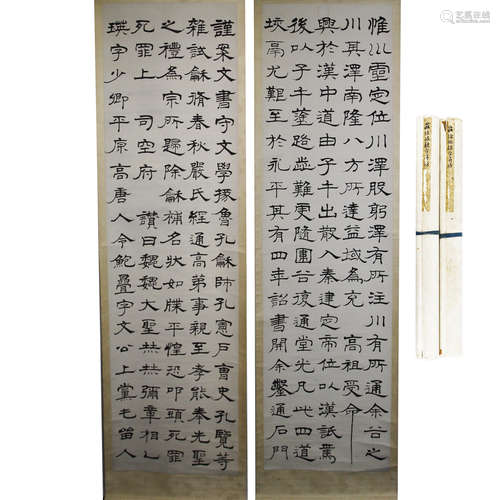 艺狐在线
惟川靈定位川澤股躬澤有所注川有所通余谷之
川其澤南隆八方所達益域為充　高祖受命
興於漢中道由子午出散入秦建定帝位以漢詆焉
後以子午塗路歰難更隨圍谷復通堂光凡此四道
垓鬲尤艱至於永平其有四年詔書開余鑿通石門
謹案文書守文學掾魯孔龢師孔憲戶曹史孔覽等
雜試龢脩春秋嚴氏經通高第事親至孝能奉先聖
之禮為宗所歸除龢補名狀如牒平惶恐叩頭死罪
死罪上　司空府　讚曰巍巍大聖赫赫彌章相乙
瑛字少卿平原高唐人令鮑疊字文公上黨屯留人